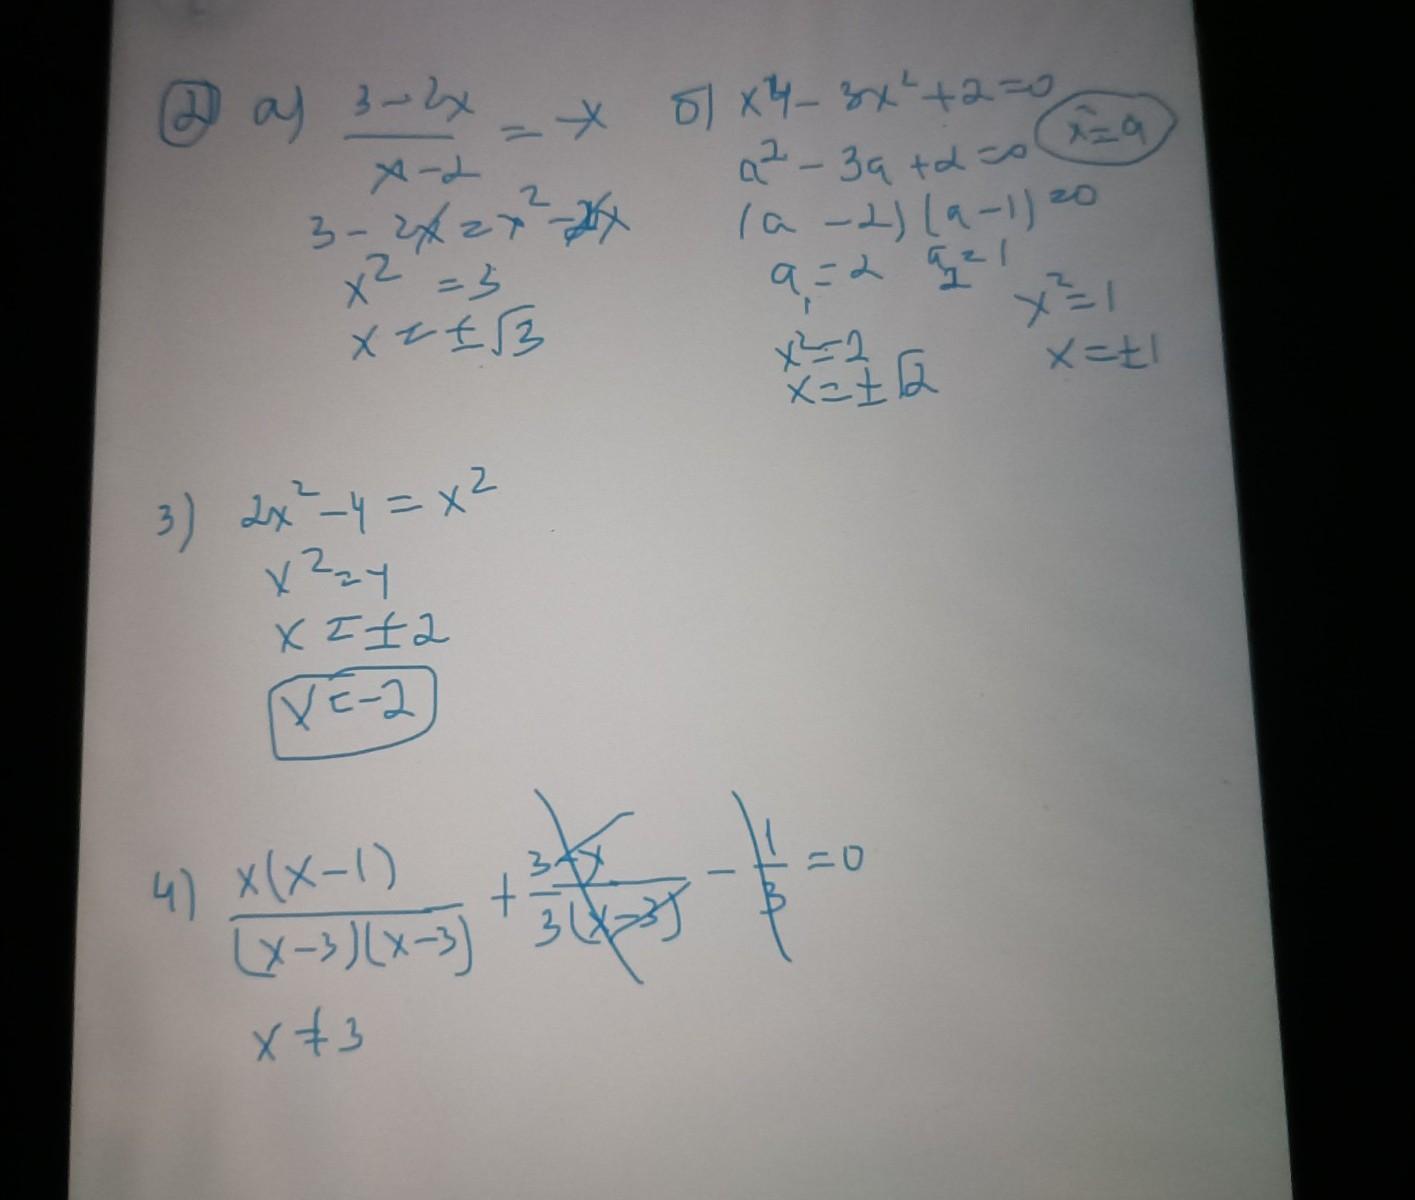 2 а) (3-2x)/(x-2) = -x
3 - 2x = x² - 2x
x² = 3
x = ±√3
б) x⁴ - 3x² + 2 = 0
x² = a
a² - 3a + 2 = 0
(a - 2)(a - 1) = 0
a₁ = 2 a₂ = 1
x² = 2
x = ±√2
x² = 1
x = ±1
3) 2x² - 4 = x²
x² = 4
x = ±2
x = -2
4) x(x-1)/((x-3)(x-3)) + (3-x)/(3(x-3)) - 1/3 = 0
x ≠ 3